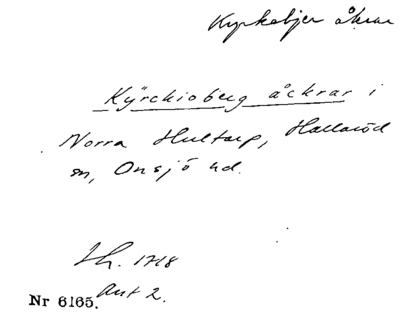 Kyrkobjer åkrar
Kÿrckioberg åckrar i
Norra Hultarp, Hallaröd
sn, Onsjö hd.
Lh. 1718
Akt 2.
Nr 6165.